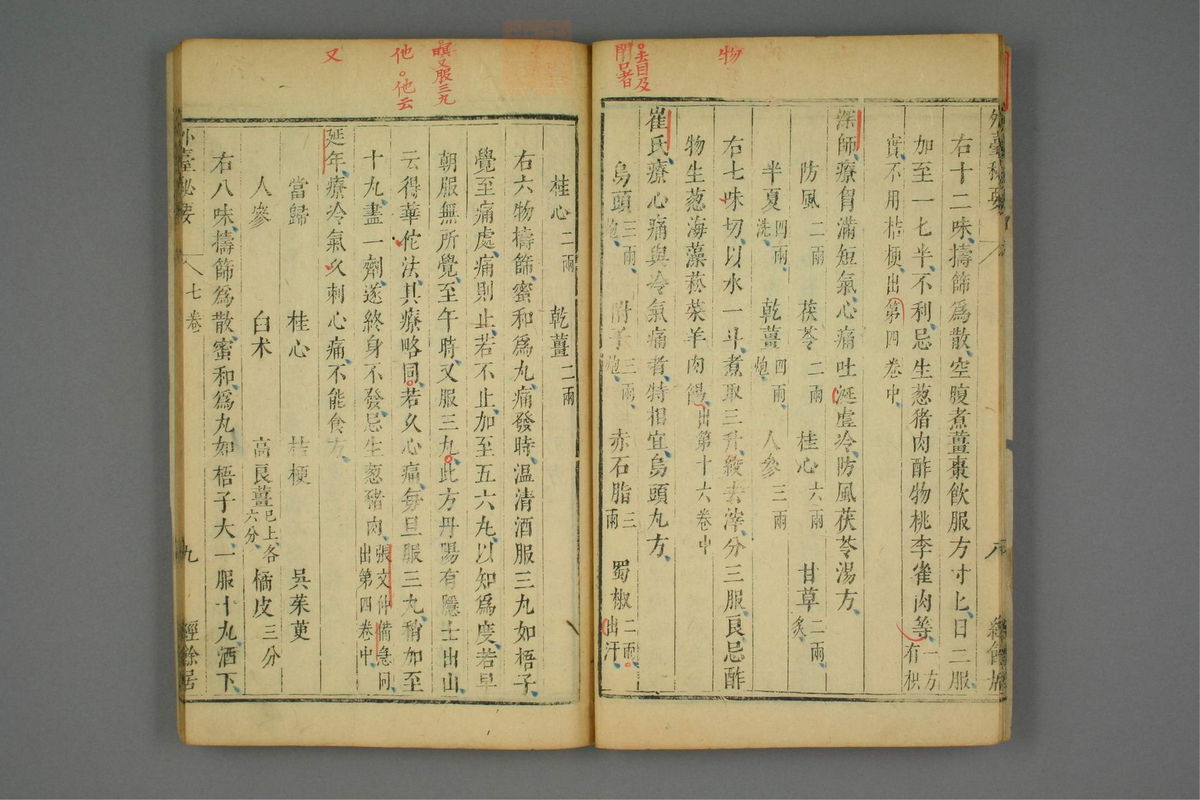 外臺秘要
八
經餘居
右十二味擣篩爲散空腹煮薑棗飲服方寸匕日二服
加至一七半不利忌生葱猪肉酢物桃李雀肉等一方有枳
實不用桔梗出第四卷中
深師療胷滿短氣心痛吐涎虛冷防風茯苓湯方
防風二兩 茯苓二兩 桂心六兩 甘草二兩炙
半夏四兩洗 乾薑四兩炮 人參三兩
右七味切以水一斗煮取三升絞去滓分三服良忌酢
物生葱海藻菘菜羊肉餳出第十六卷中
崔氏療心痛與冷氣痛者特相宜烏頭丸方
烏頭三兩炮 附子三兩炮 赤石脂三兩 蜀椒二兩出汗
物
去目及
閉口者
桂心二兩 乾薑二兩
右六物擣篩蜜和爲丸痛發時温清酒服三丸如梧子
覺至痛處痛則止若不止加至五六丸以知爲度若早
朝服無所覺至午時又服三丸此方丹陽有隱士出山
云得華佗法其療略同若久心痛每旦服三丸稍加至
十丸盡一劑遂終身不發忌生葱猪肉張文仲備急同出第四卷中
延年療冷氣久刺心痛不能食方
當歸 桂心 桔梗 吳茱萸
人參 白术 高良薑已上各六分 橘皮三分
右八味擣篩爲散蜜和爲丸如梧子大一服十丸酒下
又服三丸
他。他云
又
外臺秘要
七卷
九
經餘居